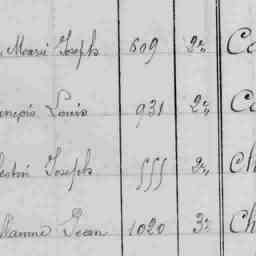 Marie Joseph 609 2e Ca
ançois Louis 931 2e Ca
estin Joseph 555 2e Ch
Jean 1020 3e Ch